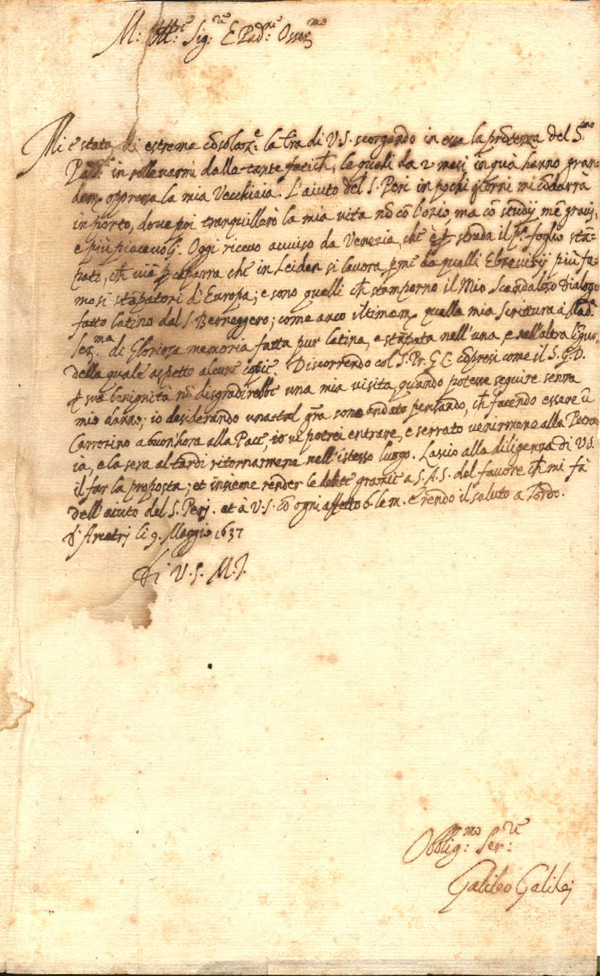 M: Ill.re Sig.re E Pad.ne Osser.mo
Mi è stata di estrema consolaz.e la lra di V.S. scorgendo in essa la prontezza del S.mo
Pad.ne in sollevarmi dalle tante fatiche, le quali da 2 mesi in quà hanno gran-
dem. oppressa la mia Vecchiaia. L'aiuto del S. Peri in pochi giorni mi condurrà
in porto, dove poi tranquillerò la mia vita nō cō l'ozio, ma cō studij mē gravi,
e più piacevoli. Oggi ricevo avviso da Venezia, che è p strada il p.o foglio stā-
pato, che viē p caparra che in Leiden si lavora p me da quelli Elzevirij più fa-
mosi stāpatori d'Europa; e sono quelli ch stamporno il Mio Scandaloso Dialogo
fatto latino dal S. Berneggero; come anco ultimam. quella mia Scrittura à Mad.
Ser.ma di Gloriosa memoria fatta pur latina, e stāpata nell'una, e nell'altra lingua
della quale aspetto alcune copie. Discorrendo col S. Pr. G. C. compresi come il S. G. D.
p sua benignità nō disgradirebbe una mia visita quando potesse seguire senza
mio danno; io desiderando una tal gra. sono andato pensando, ch facendo essere ū
Carrozino a buon'hora alla Pace, io vi potrei entrare, e serrato venirmene alla Petraia
e la sera al tardi ritornarmene nell'istesso luogo. Lascio alla diligenza di V.S.
il far la proposta; et insieme render le debite grazie a S.A.S. del favore ch mi fà
dell'aiuto del S. Perj. et à V.S. cō ogni affetto b. le m. e rendo il saluto a Tordo.
d'Arcetrj li 9. Maggio 1637
Di V.S. M.I.
Obblig.mo Ser.re
Galileo Galilej